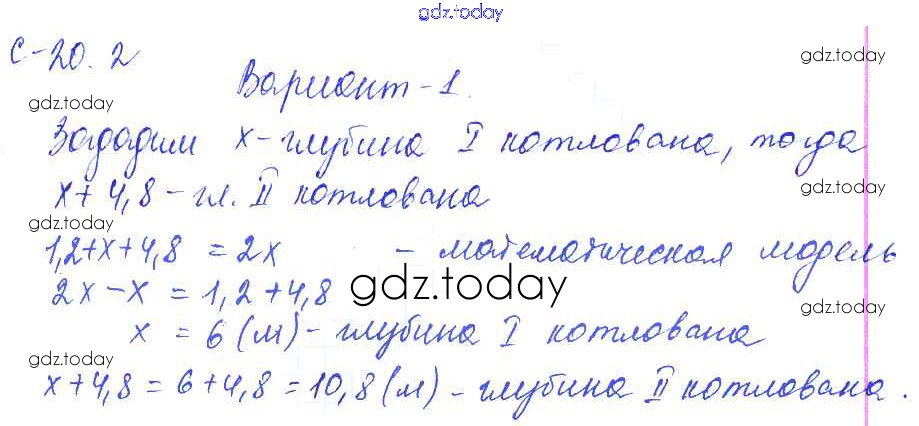 gdz.today
С-20.2
gdz.today
Вариант-1.
gdz.today
Зададим x-глубина I котлована, тогда
x+4,8-гл. II котлована
gdz.today
gdz.today
1,2+x+4,8 = 2x - математическая модель
2x-x = 1,2+4,8
gdz.today
gdz.today
x = 6(м)-глубина I котлована
gdz.today
x+4,8=6+4,8=10,8(м)-глубина II котлована.
gdz.today